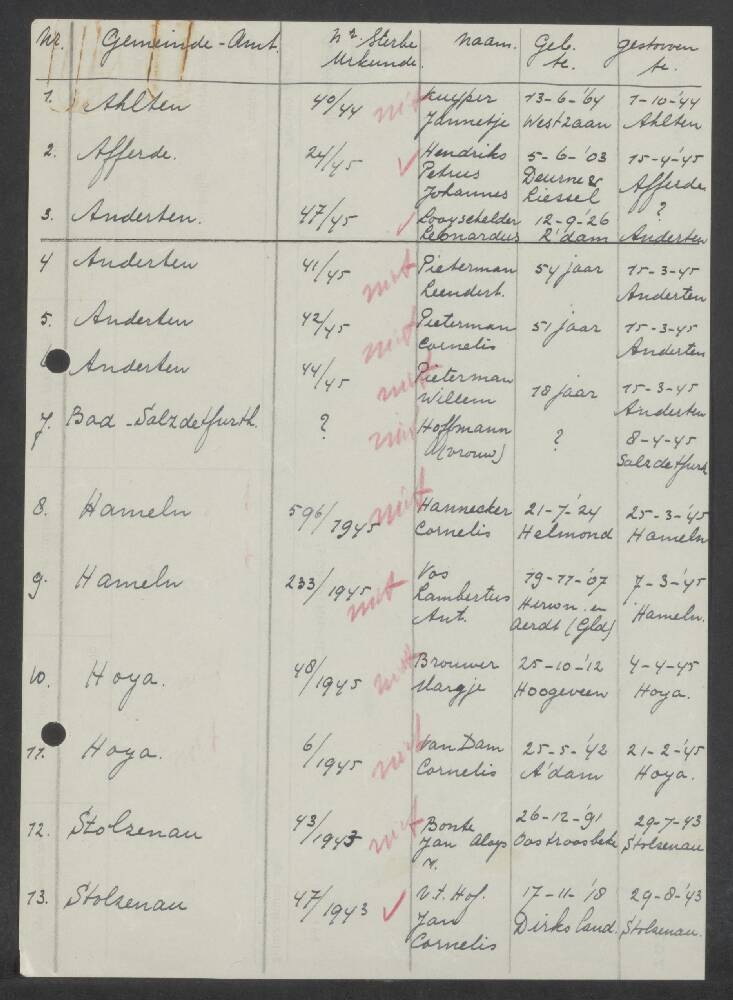 Nr. Gemeinde-Amt. Nr. Sterbe Urkunde. Naam. Geb. te. gestorven te.
1. Ahlten 40/44 niet Kuyper 13-6-'64 1-10-'44
Jannetje Westzaan Ahlten
2. Afferde. 24/45 ✓ Hendriks 5-6-'03 15-4-'45
Petrus Deurne & Afferde
Johannes Liessel
3. Anderten. 47/45 ✓ Looyschelder 12-9-'26 ?
Leonardus R'dam Anderten
4 Anderten 41/45 niet Pieterman 54 jaar 15-3-45
Leendert. Anderten
5. Anderten 42/45 niet Pieterman 51 jaar 15-3-45
Cornelis Anderten
6 Anderten 44/45 niet Pieterman 18 jaar 15-3-45
Willem Anderten
7. Bad-Salzdetfurth. ? niet Hoffmann ? 8-4-45
(vrouw) Salzdetfurth
8. Hameln 596/1945 niet Hannecker 21-7-'24 25-3-'45
Cornelis Helmond Hameln
9. Hameln 233/1945 niet Vos 19-11-'07 7-3-'45
Lambertus Herwn. en Hameln.
Ant. Aerdt (Gld)
10. Hoya. 48/1945 niet Brouwer 25-10-'12 4-4-45
Margje Hoogeveen Hoya.
11. Hoya. 6/1945 niet Van Dam 25-5-'42 21-2-'45
Cornelis A'dam Hoya.
12. Stolzenau 43/1943 niet Bonte 26-12-'91 29-7-'43
Jan Aloys Oostroosbeke Stolzenau
M.
13. Stolzenau 47/1943 ✓ v.t. Hof. 17-11-'18 29-8-'43
Jan Dirksland. Stolzenau.
Cornelis